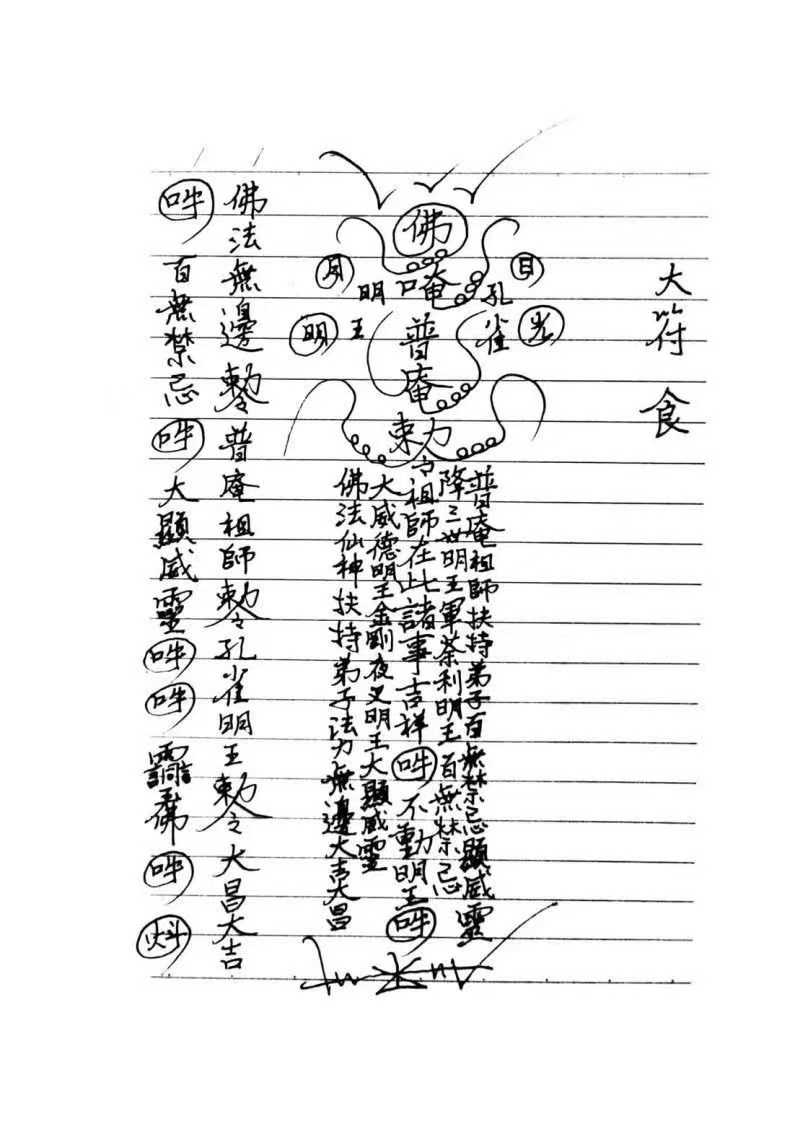 大符食
日
光
孔雀
佛唵普庵勅令祖師在此諸事吉祥吽不動明王吽
明王
月
明
普庵祖師扶持弟子百無禁忌顯威靈
降三世明王軍荼利明王百無禁忌
大威德明王金剛夜叉明王大顯威靈
佛法仙神扶持弟子法力無邊大吉大昌
佛法無邊勅令普庵祖師勅令孔雀明王勅令大昌大吉
吽百無禁忌吽大顯威靈吽吽佛吽